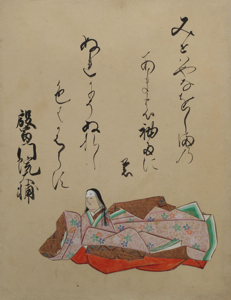 みせはやなをしまの
あまの袖たに
も
ぬれにそぬれし
色はかはらす
殷富門院大輔